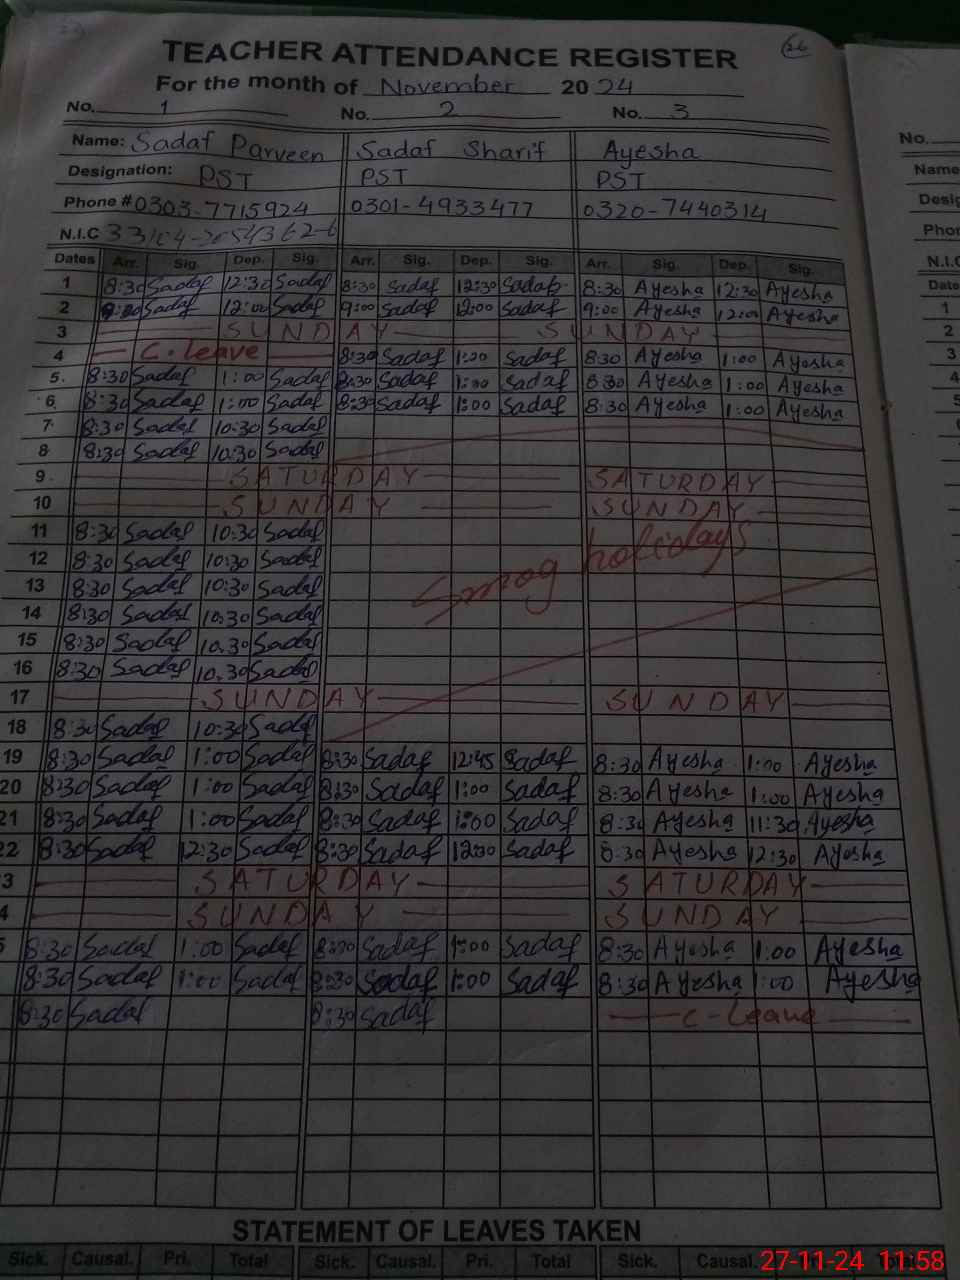 26
TEACHER ATTENDANCE REGISTER
For the month of November 20 24
No. 1 No. 2 No. 3 No.
Name: Sadaf Parveen Sadaf Sharif Ayesha Name
Designation: PST PST PST Desig
Phone # 0303-7715924 0301-4933477 0320-7440314 Phon
N.I.C N.I.C
Dates Arr. Sig. Dep. Sig. Arr. Sig. Dep. Sig. Arr. Sig. Dep. Sig. Date
1 8:30 Sadaf 12:30 Sadaf 8:30 Sadaf 12:30 Sadaf 8:30 Ayesha 12:30 Ayesha 1
2 9:00 Sadaf 12:00 Sadaf 9:00 Sadaf 12:00 Sadaf 9:00 Ayesha 12:00 Ayesha 2
3 SUNDAY SUNDAY 3
4 C. leave 8:30 Sadaf 1:00 Sadaf 8:30 Ayesha 1:00 Ayesha 4
5. 8:30 Sadaf 1:00 Sadaf 8:30 Sadaf 1:00 Sadaf 8:30 Ayesha 1:00 Ayesha 5
6 8:30 Sadaf 1:00 Sadaf 8:30 Sadaf 1:00 Sadaf 8:30 Ayesha 1:00 Ayesha
7 8:30 Sadaf 10:30 Sadaf
8 8:30 Sadaf 10:30 Sadaf
9 SATURDAY SATURDAY
10 SUNDAY SUNDAY
11 8:30 Sadaf 10:30 Sadaf
12 8:30 Sadaf 10:30 Sadaf
Smog holidays
13 8:30 Sadaf 10:30 Sadaf
14 8:30 Sadaf 10:30 Sadaf
15 8:30 Sadaf 10.30 Sadaf
16 8:30 Sadaf 10.30 Sadaf
17 SUNDAY SUNDAY
18 8:30 Sadaf 10:30 Sadaf
19 8:30 Sadaf 1:00 Sadaf 8:30 Sadaf 12:45 Sadaf 8:30 Ayesha 1:00 Ayesha
20 8:30 Sadaf 1:00 Sadaf 8:30 Sadaf 1:00 Sadaf 8:30 Ayesha 1:00 Ayesha
21 8:30 Sadaf 1:00 Sadaf 8:30 Sadaf 1:00 Sadaf 8:30 Ayesha 11:30 Ayesha
22 8:30 Sadaf 12:30 Sadaf 8:30 Sadaf 12:30 Sadaf 8:30 Ayesha 12:30 Ayesha
3 SATURDAY SATURDAY
4 SUNDAY SUNDAY
5 8:30 Sadaf 1:00 Sadaf 8:30 Sadaf 1:00 Sadaf 8:30 Ayesha 1:00 Ayesha
8:30 Sadaf 1:00 Sadaf 8:30 Sadaf 1:00 Sadaf 8:30 Ayesha 1:00 Ayesha
8:30 Sadaf 8:30 Sadaf C-Leave
STATEMENT OF LEAVES TAKEN
Sick. Causal. Pri. Total Sick. Causal. Pri. Total Sick. Causal.
27-11-24 11:58